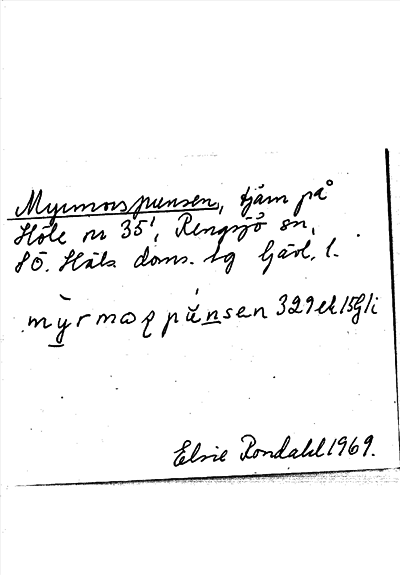 Myrmorspunsen, tjärn på
Höle nr 35¹, Rengsjö sn,
SÖ. Häls doms. tg Gävl. l.
myrmoʀpunsen 329ek15Gli
Elsie Rondahl 1969.